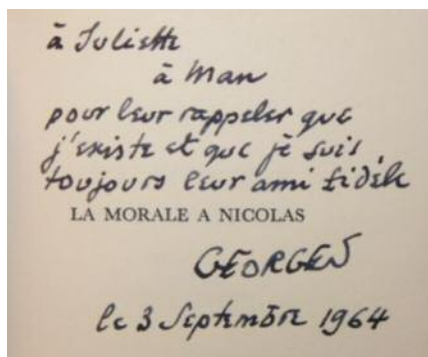 à Juliette
à Man
pour leur rappeler que
j'existe et que je suis
toujours leur ami fidèle
LA MORALE A NICOLAS
GEORGES
le 3 Septembre 1964